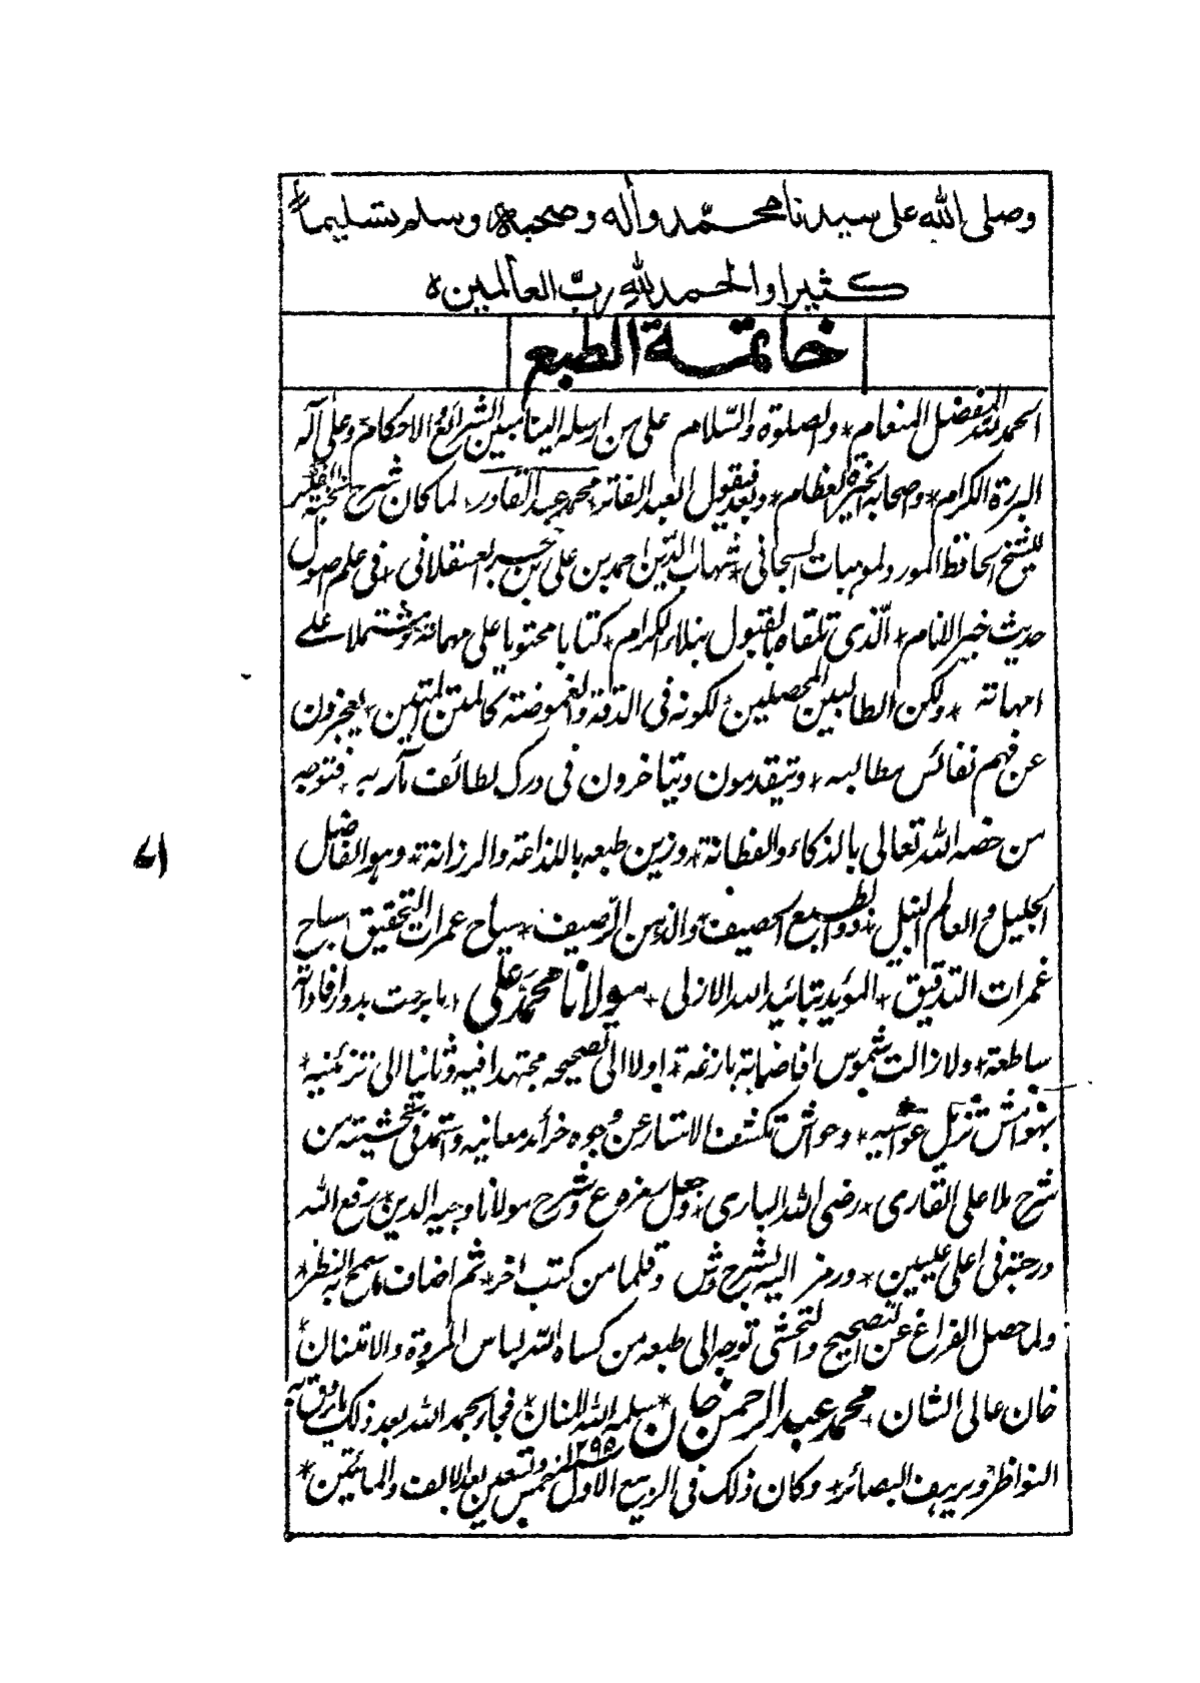 وصلى الله على سيدنا محمّد واله وصحبه وسلم تسليماً
كثيرا والحمد للهِ ربّ العالمين ه
خاتمة الطبع
الحمد لله المفضل المنعام * والصلوة والسّلام على من ارسله الينا لتبيين الشرائع والاحكام وعلى آله
البررة الكرام * وصحابه الخيرة العظام * وبعد فيقول العبد الفاتر محمد عبد القادر لما كان شرح نخبة الفكر
للشيخ الحافظ المورد لموهبات السبحاني * شهاب الدّين احمد بن على بن حجر العسقلانى * فى علم اصول
حديث خير الانام * الّذى تلقاه بالقبول نبلاء الكرام * كتابا محتويا على مهماته ومشتملا على
امهاته * ولكن الطالبين المحصلين لكونه فى الدقة والغموضة كالمتن المتين * يعجزون
عن فهم نفائس مطالبه * ويتقدمون ويتاخرون فى درك لطائف مآربه * فتوجه
من خصه الله تعالى بالذكاء والفطانة * وزين طبعه باللذاعة والرزانة * وهو الفاضل
الجليل والعالم النبيل * ذو الطبع الحصيف * والذهن الرّصيف * سياح عمرات التحقيق سباح
غمرات التدقيق * المؤيد بتائيد الله الازلى * مولانا محمد على * ما برحت بدور افاداته
ساطعة * ولا زالت شموس افاضاته بازغة * اولا الى تصحيحه مجتهدا فيه وثانيا الى تزئينه *
بهوامش تزيل غواشيه * وحواش تكشف الاستار عن وجوه خرائد معانيه واستمد فى تحشيته من
شرح ملا على القارى * رضى الله البارى * وجعل رمزه ع وشرح مولانا وجيه الدين رفع الله
درجته فى اعلى عليين * ورمز اليه بشرح وش وقلما من كتب اخر * ثم اضاف ما سمح به النظر *
ولما حصل الفراغ عن التصحيح والتحشى توجه الى طبعه من كساه الله لباس المروة والامتنان
خان عالى الشان * محمد عبد الرحمن خان * سلمه الله المنان * فجاء بحمد الله بعد ذلك ما يروق به
النواظر ويرهف البصائر * وكان ذلك فى الربيع الاول ١٢٩٥ خمس وتسعين بعد الالف والمائتين *
اے